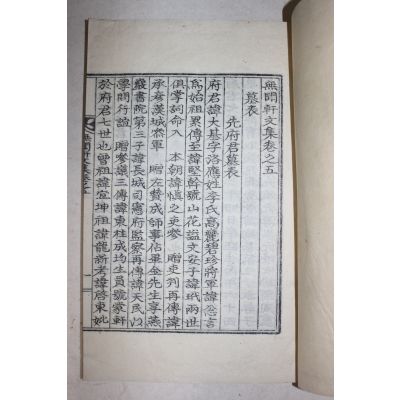 無聞軒文集卷之五
墓表
先府君墓表
府君諱大基字洛應姓李氏高麗碧珍將軍諱悤言
爲始祖累傳至諱堅幹號山花謚文安子諱玳兩世
俱掌詞命入 本朝諱愼之吏參 贈吏判再傳諱
承彦漢城參軍 贈左贊成師事佔畢金先生享燕
巖書院第三子諱長城司憲府監察再傳諱天民以
學問行誼 贈參議三傳諱東柱成均生員號蒙軒
於府君七世也曾祖諱宜坤祖諱龍新考諱啓東妣